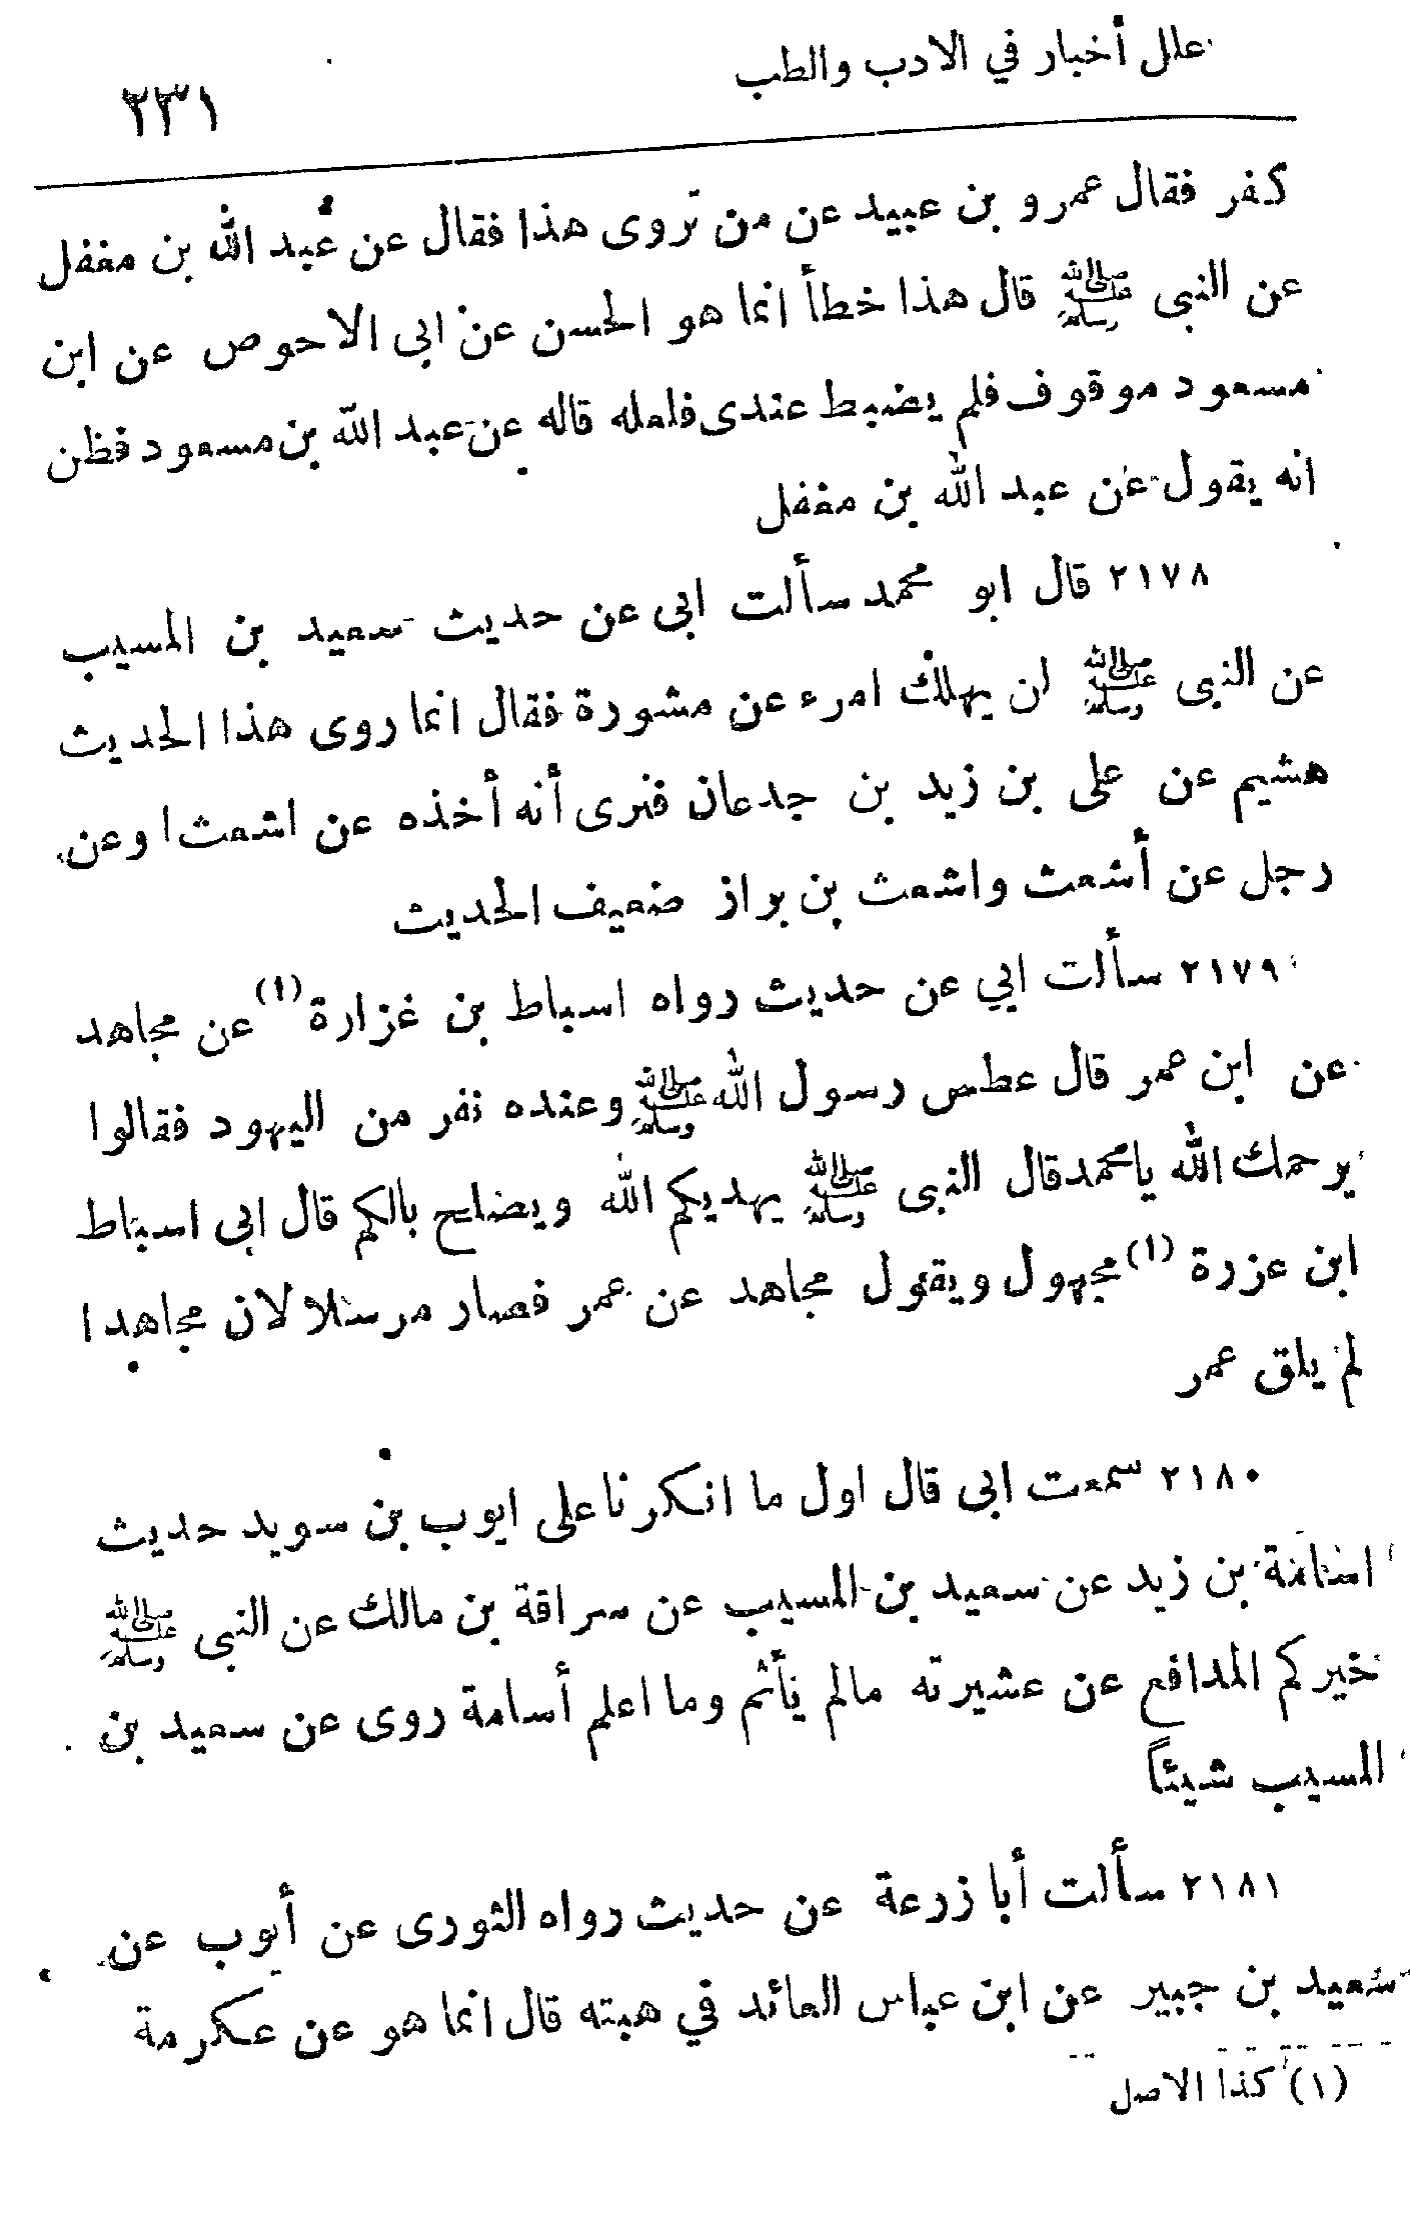 علل أخبار في الادب والطب
٢٣١
كفر فقال عمرو بن عبيد عن من تروى هذا فقال عن عبد الله بن مغفل
عن النبى ﷺ قال هذا خطأ انما هو الحسن عن ابى الاحوص عن ابن
مسعود موقوف فلم يضبط عندى فلعله قاله عن عبد الله بن مسعود فظن
انه يقول عن عبد الله بن مغفل
٢١٧٨ قال ابو محمد سألت ابى عن حديث سعيد بن المسيب
عن النبى ﷺ لن يهلك امرء عن مشورة فقال انما روى هذا الحديث
هشيم عن على بن زيد بن جدعان فنرى أنه أخذه عن اشعث ا وعن
رجل عن أشعث واشعث بن براز ضعيف الحديث
٢١٧٩ سألت ابي عن حديث رواه اسباط بن غزارة (١) عن مجاهد
عن ابن عمر قال عطس رسول الله ﷺ وعنده نفر من اليهود فقالوا
يرحمك الله يامحمد قال النبى ﷺ يهديكم الله ويصلح بالكم قال ابى اسباط
ابن عزرة (١) مجهول ويقول مجاهد عن عمر فصار مرسلا لان مجاهدا
لم يلق عمر
٢١٨٠ سمعت ابى قال اول ما انكرنا على ايوب بن سويد حديث
اسامة بن زيد عن سعيد بن المسيب عن سراقة بن مالك عن النبى ﷺ
خيركم المدافع عن عشيرته مالم يأثم وما اعلم أسامة روى عن سعيد بن
المسيب شيئاً
٢١٨١ سألت أبا زرعة عن حديث رواه الثورى عن أيوب عن
سعيد بن جبير عن ابن عباس العائد في هبته قال انما هو عن عكرمة
(١) كذا الاصل